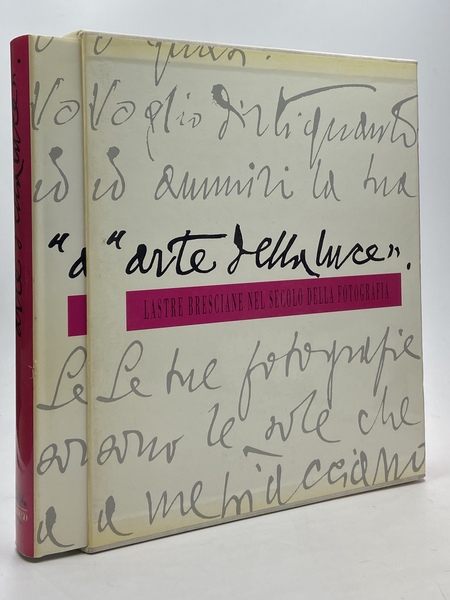 “arte della luce”.
Voglio dirti quanto
la tua
“arte della luce”.
LASTRE BRESCIANE NEL SECOLO DELLA FOTOGRAFIA
Le tue fotografie
sono le sole che
a me